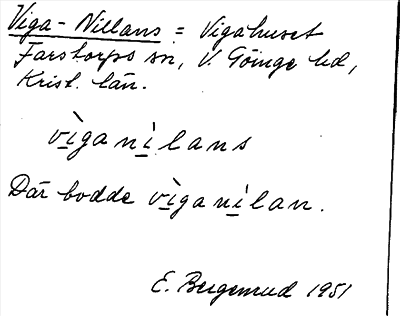 Viga-Nillans = Vigahuset
Farstorps sn, V. Göinge hd,
Krist. län.
vìganilans
Där bodde vìganilan.
E. Bergmrud 1951